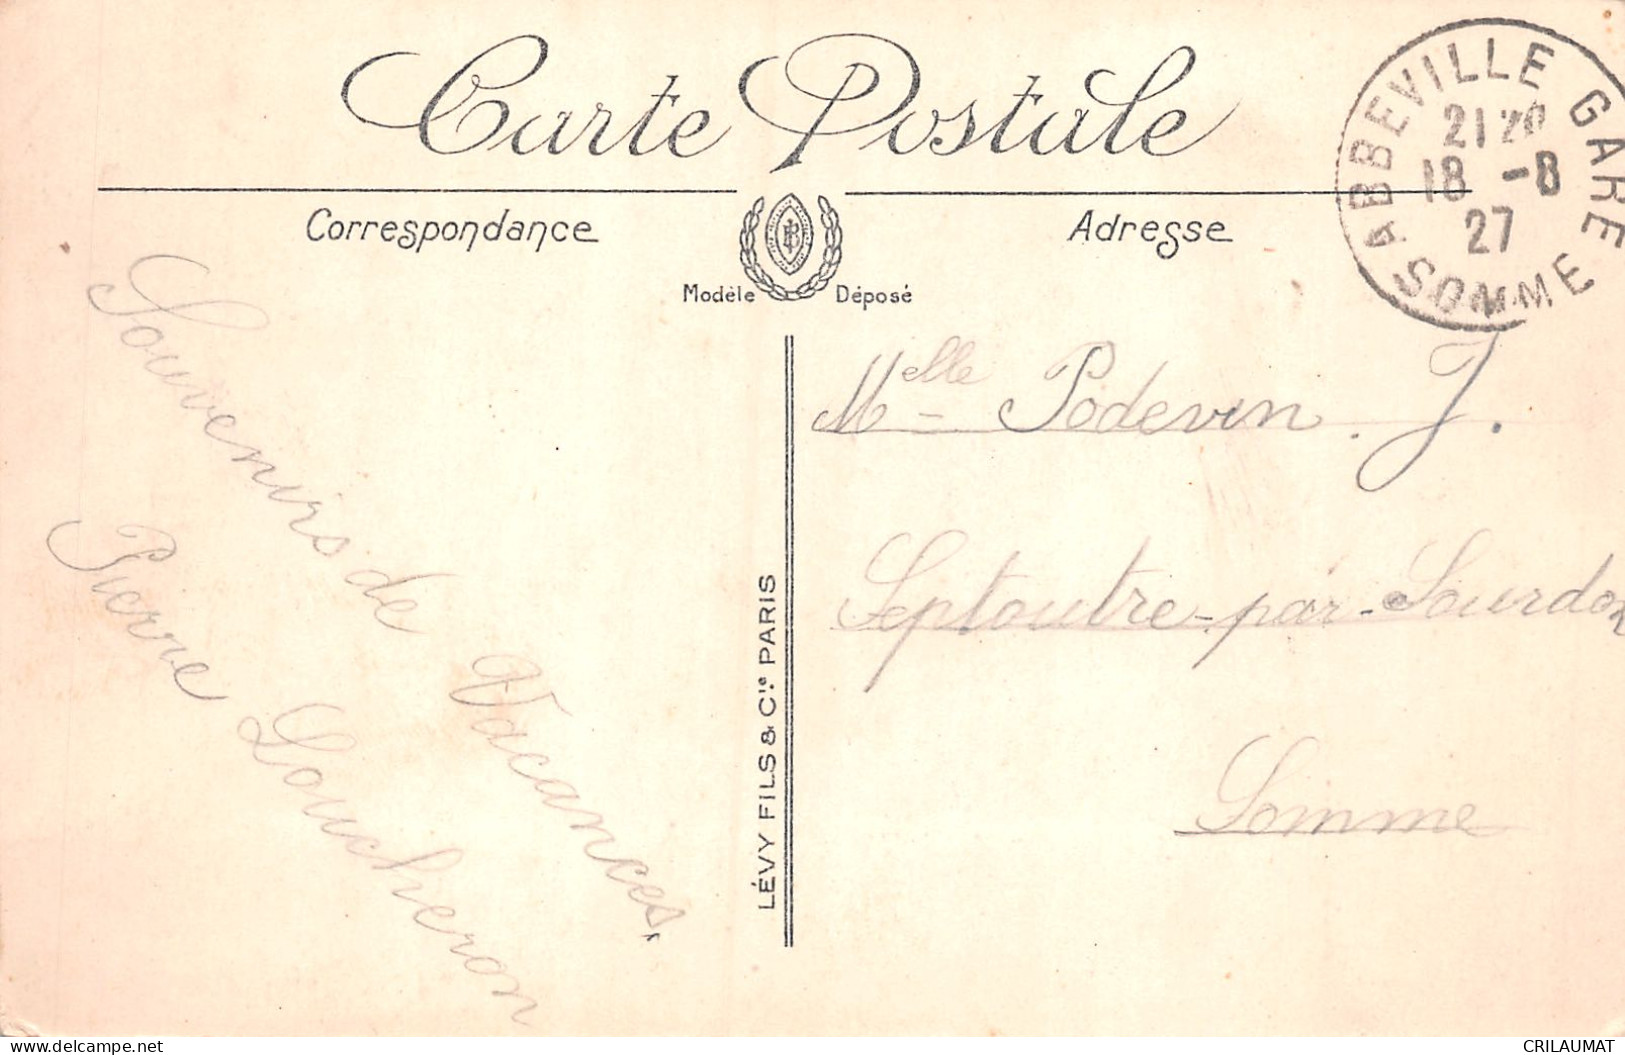 Carte Postale
Correspondance
Adresse
Modèle Déposé
ABBEVILLE GARE
21 20
18 -8
27
SOMME
Souvenirs de Vacances,
Pierre Loucheron
LÉVY FILS & Cie PARIS
Melle Podevin. J.
Septoutre-par-Sourdon
Somme
www.delcampe.net
CRILAUMAT